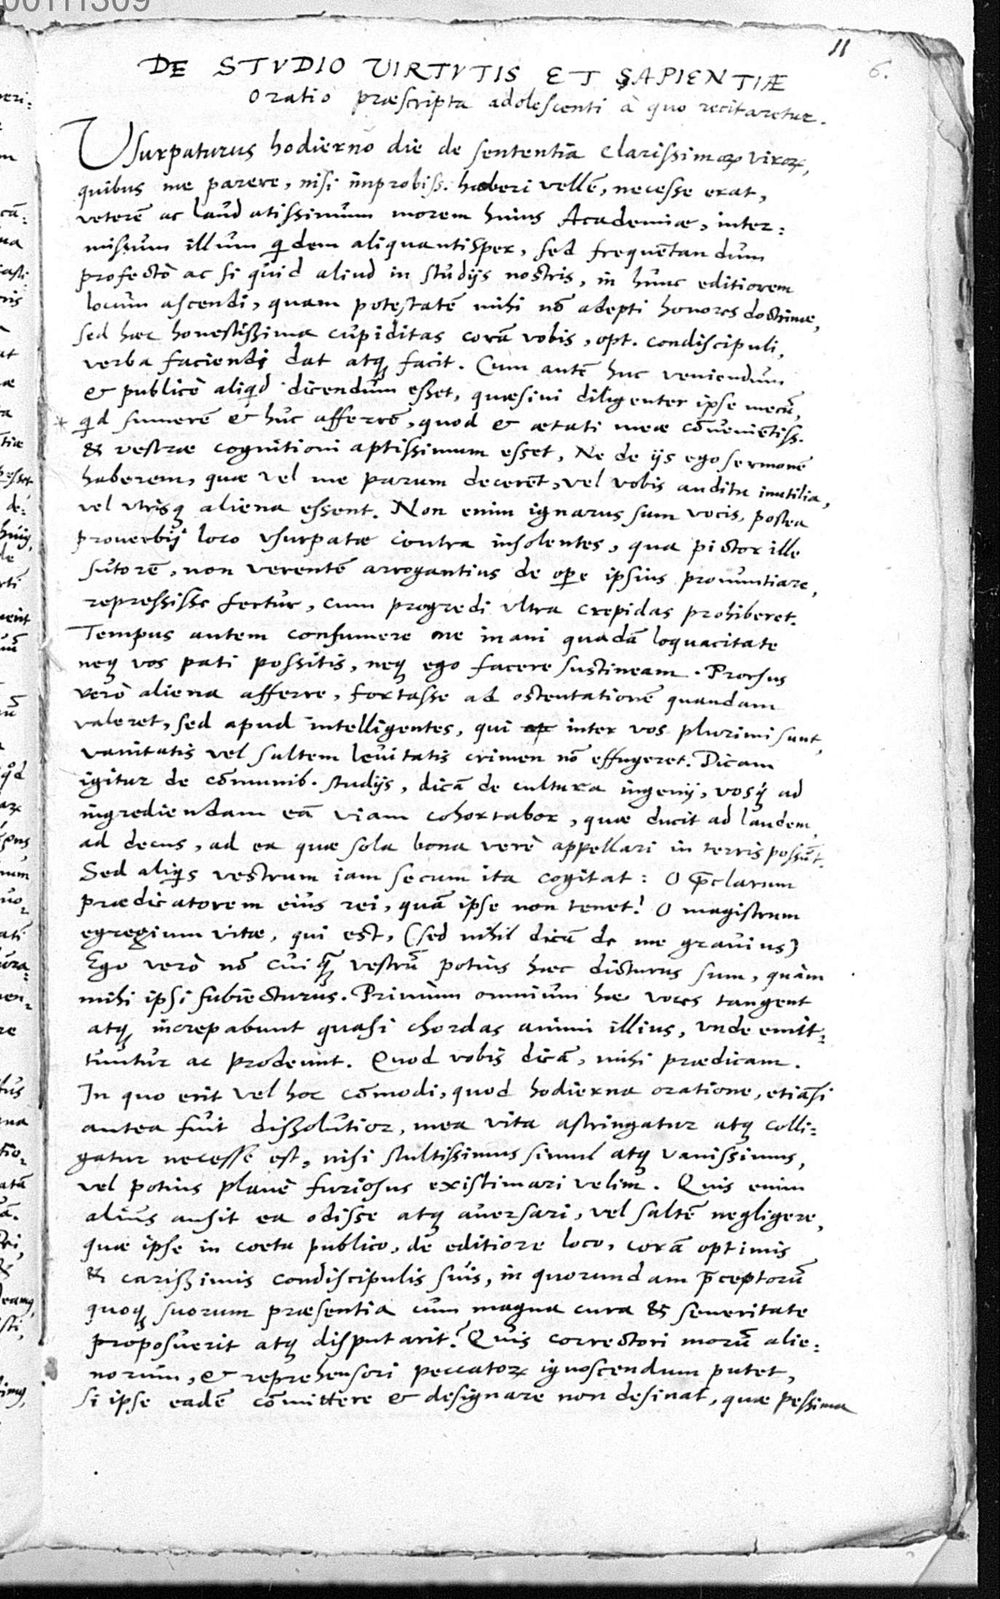 00111309
11
6.
DE STVDIO VIRTVTIS ET SAPIENTIÆ
Oratio præscripta adolescenti à quo recitaretur.
Vsurpaturus hodierno die de sententia clarissimoꝝ viroꝝ,
quibus me parere, nisi improbiss. haberi vellē, necesse erat,
veterē ac laudatissimum morem huius Academiæ, inter-
missum illum qdem aliquantisper, sed frequētandum
profectò ac si quid aliud in studijs nostris, in hunc editiorem
locum ascendi, quam potestatē mihi nō adepti honores doctrinæ,
sed hæc honestissima cupiditas corā vobis, opt. condiscipuli,
verba faciendi dat atq; facit. Cum autē huc veniendum
& publicè aliqd dicendum esset, quæsiui diligenter ipse mecū,
qd sumerē & huc afferrē, quod & ætati meæ cōuenientiss.
& vestræ cognitioni aptissimum esset, Ne de ijs ego sermonē
haberem, quæ vel me parum decerēt, vel vobis auditu inutilia,
vel vtrisq; aliena essent. Non enim ignarus sum vocis, postea
prouerbij loco vsurpatæ contra insolentes, qua pictor ille
sutorē, non verentē arrogantius de oꝑe ipsius pronuntiare,
repressisse fertur, cum progredi vltra crepidas prohiberet.
Tempus autem consumere me inani quadā loquacitate
neq; vos pati possitis, neq; ego facere sustineam. Prorsus
verò aliena afferre, fortasse ad ostentationē quandam
valeret, sed apud intelligentes, qui inter vos plurimi sunt,
vanitatis vel saltem leuitatis crimen nō effugeret. Dicam
igitur de cōmunib. studijs, dicā de cultura ingenij, vosq; ad
ingrediendam eā viam cohortabor, quæ ducit ad laudem,
ad decus, ad ea quæ sola bona verè appellari in terris possūt.
Sed aliqs vestrum iam secum ita cogitat: O p̄clarum
prædicatorem eius rei, quā ipse non tenet! O magistrum
egregium vitæ, qui est, (sed nihil dicā de me grauius)
Ego verò nō cuiq̄; vestrū potius hæc dicturus sum, quàm
mihi ipsi subiecturus. Primùm omnium hæ voces tangent
atq; increpabunt quasi chordas animi illius, vnde emit-
tuntur ac prodeunt. Quod vobis dicā, mihi prædicam.
In quo erit vel hoc cōmodi, quod hodierna oratione, etiāsi
antea fuit dissolutior, mea vita astringatur atq; colli-
gatur necesse est, nisi stultissimus simul atq; vanissimus,
vel potius planè furiosus existimari velim. Quis enim
alius ausit ea odisse atq; auersari, vel saltē negligere,
quæ ipse in coetu publico, de editiore loco, corā optimis
& carissimis condiscipulis suis, in quorundam p̄ceptorū
quoq; suorum præsentia cum magna cura & seueritate
proposuerit atq; disputarit? Quis correctori morū alie-
norum, & reprehensori peccatoꝝ ignoscendum putet,
si ipse eadē cōmittere & designare non desinat, quæ pessima